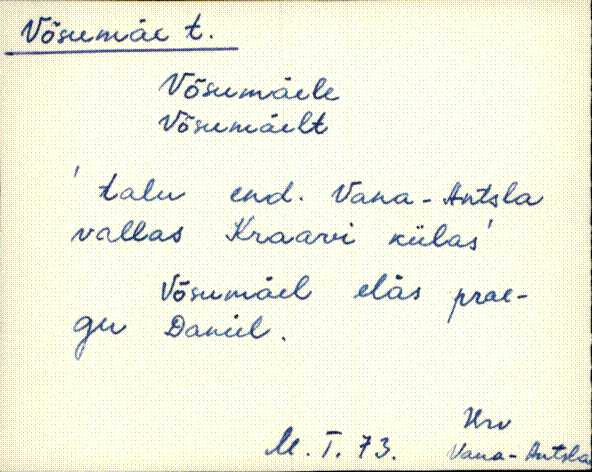 Võsumäe t.
Võsumäele
Võsumäelt
'talu end. Vana-Antsla
vallas Kraavi külas'
Võsumäel eläs prae-
gu Daniel.
Urv
M. I. 73. Vana-Antsla